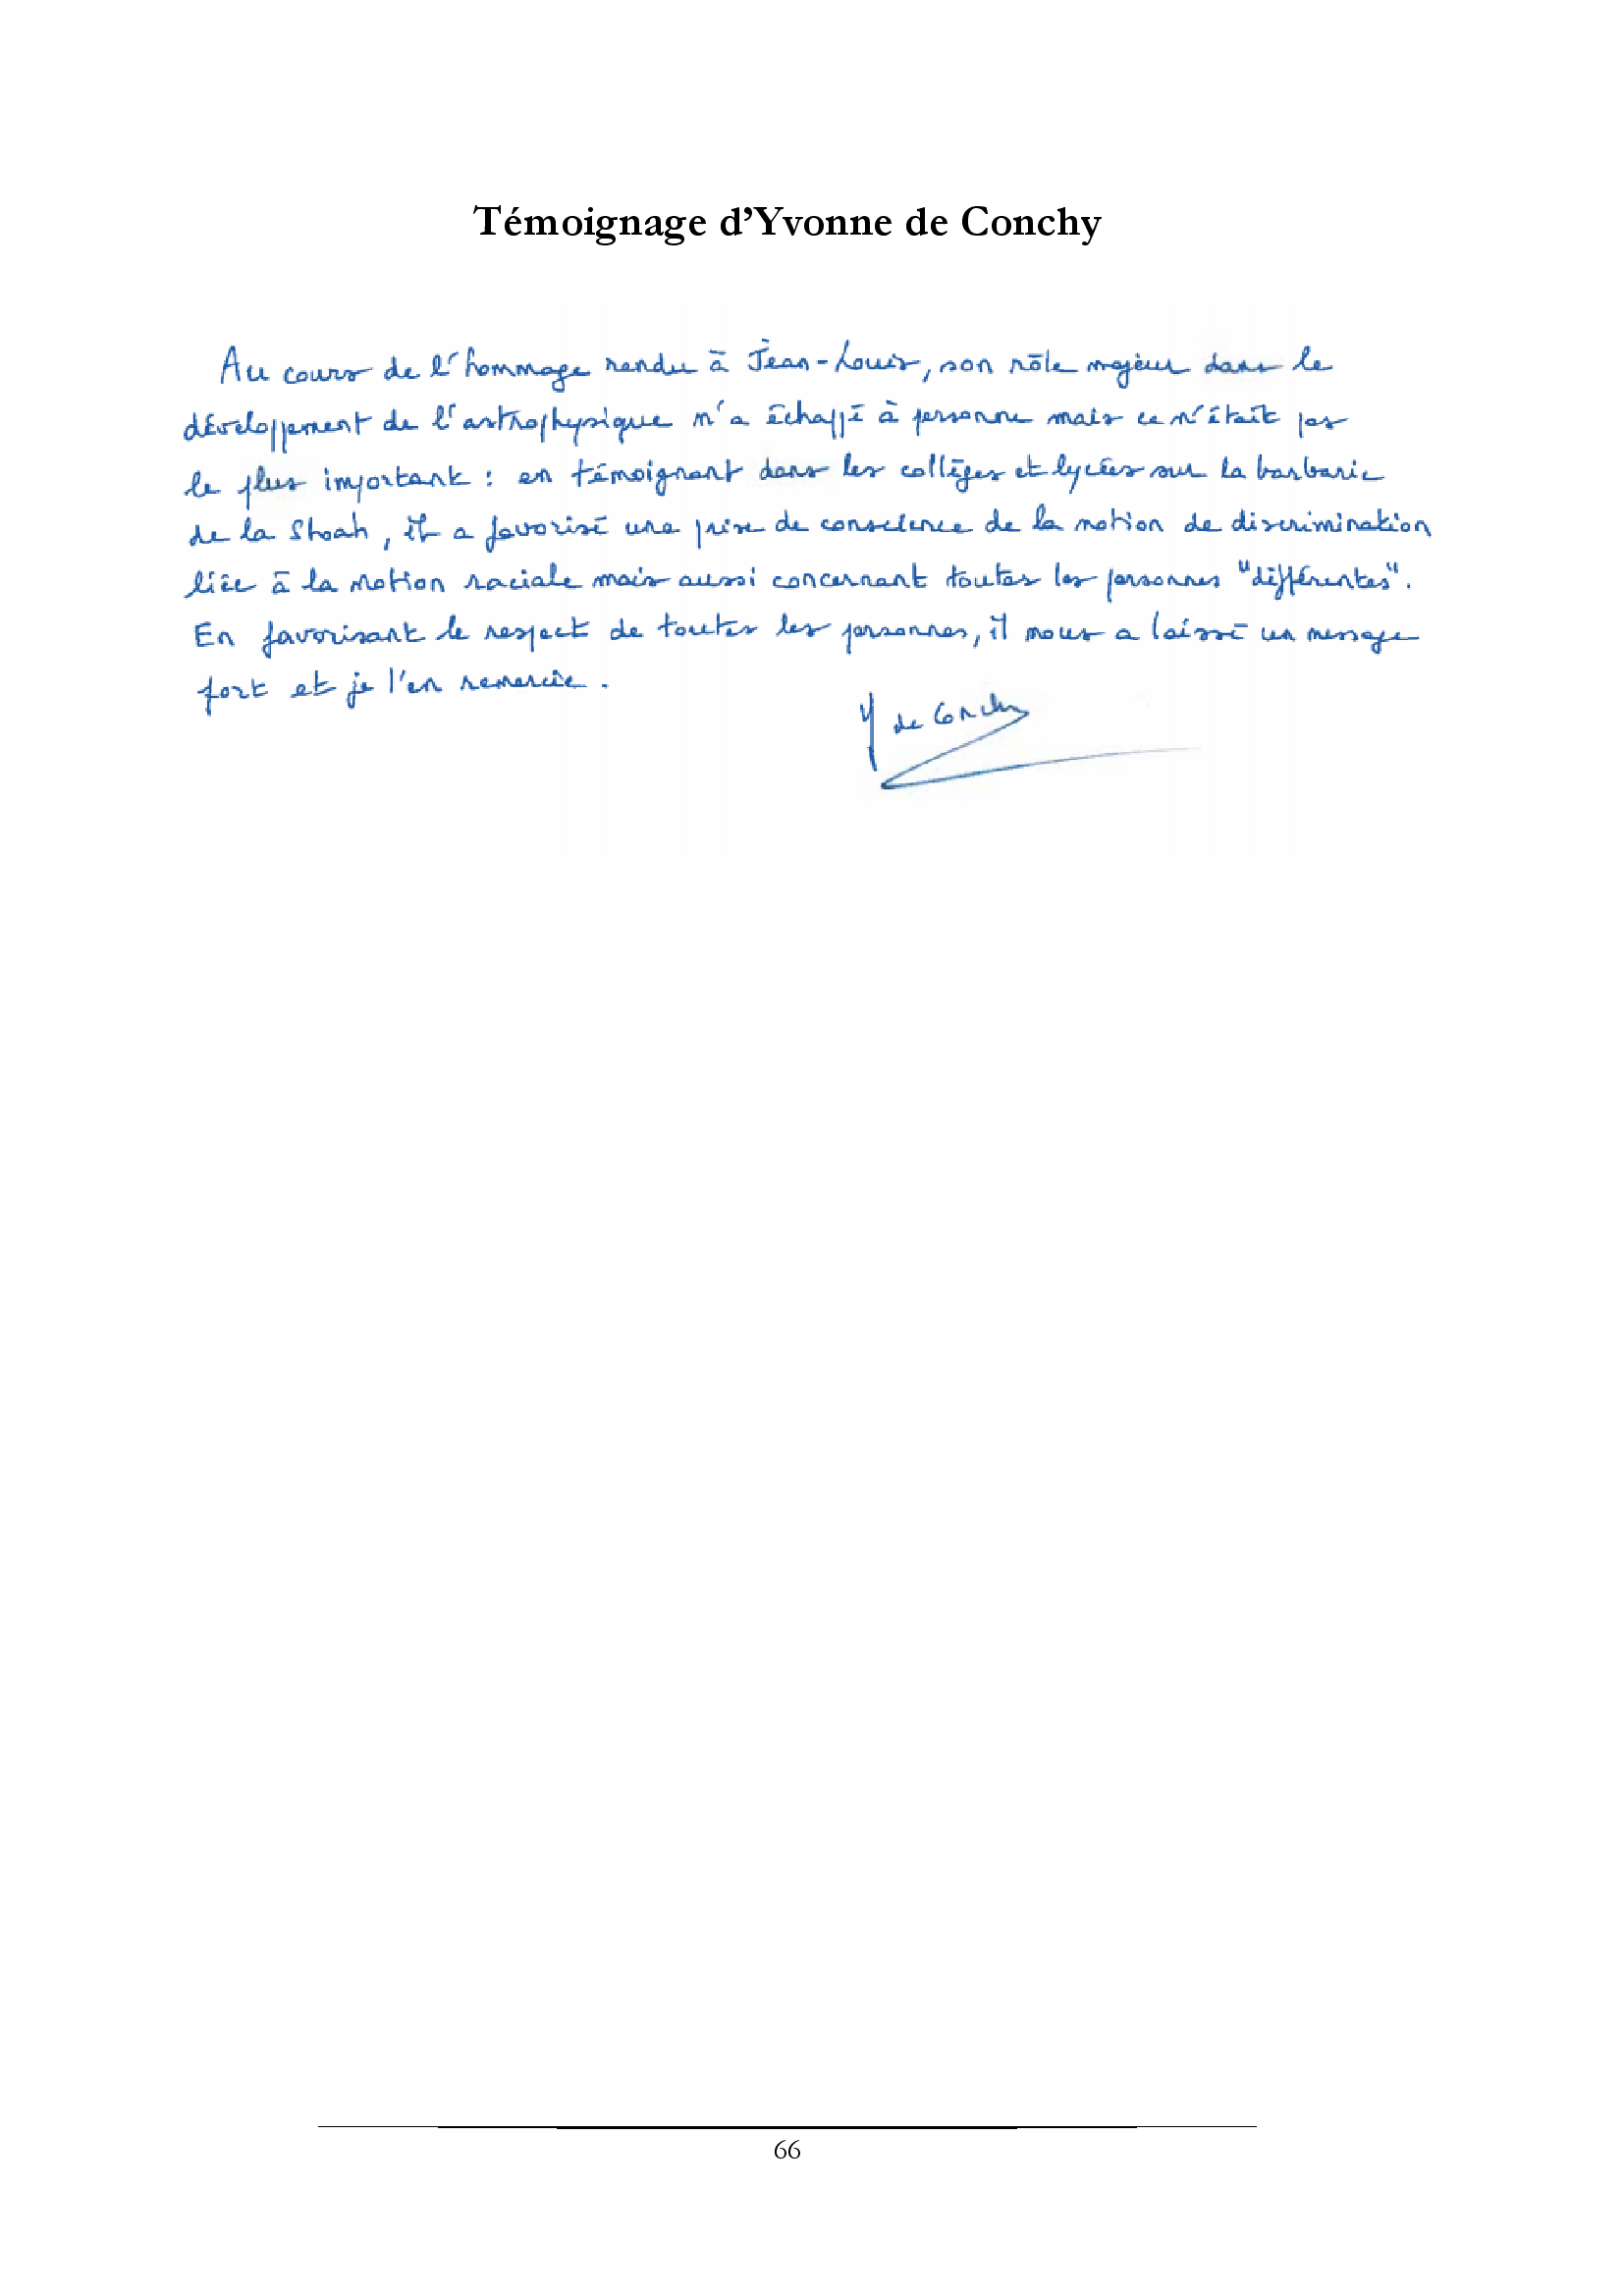 Témoignage d’Yvonne de Conchy
Au cours de l'hommage rendu à Jean-Louis, son rôle majeur dans le
développement de l'astrophysique n'a échappé à personne mais ce n'était pas
le plus important : en témoignant dans les collèges et lycées sur la barbarie
de la Shoah, il a favorisé une prise de conscience de la notion de discrimination
liée à la notion raciale mais aussi concernant toutes les personnes "différentes".
En favorisant le respect de toutes les personnes, il nous a laissé un message
fort et je l'en remercie.
Y de Conchy
66